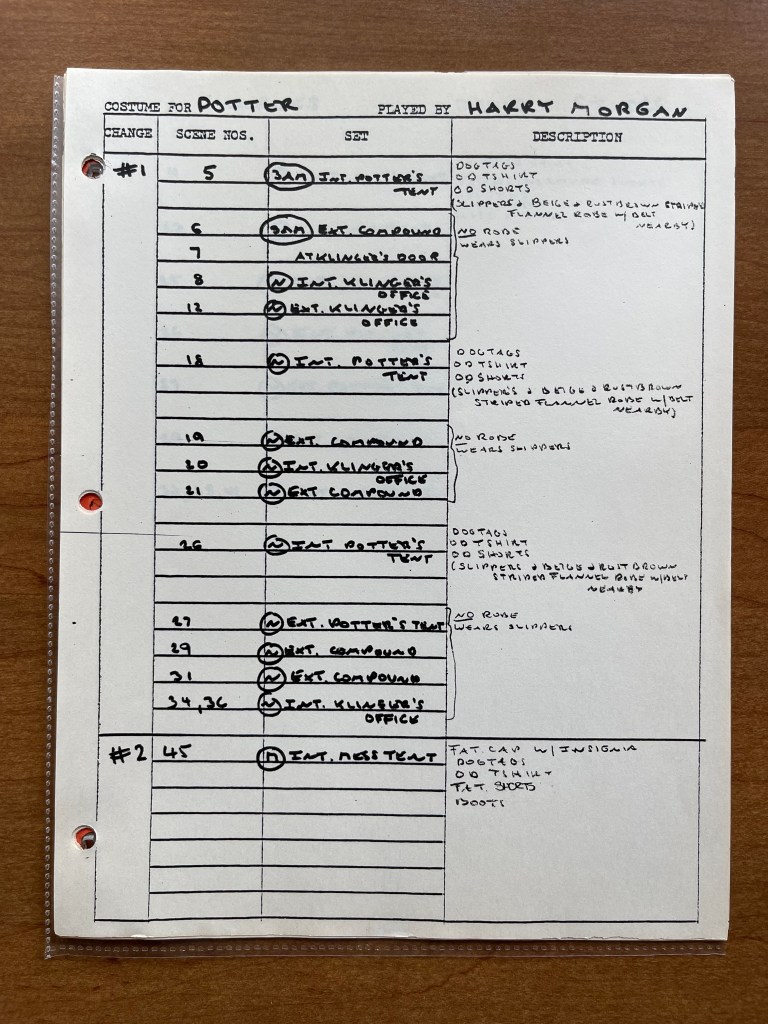 COSTUME FOR POTTER PLAYED BY HARRY MORGAN
CHANGE SCENE NOS. SET DESCRIPTION
#1 5 3AM INT. POTTER'S TENT
DOGTAGS
OD TSHIRT
OD SHORTS
(SLIPPERS & BEIGE & RUST BROWN STRIPED
FLANNEL ROBE W/ BELT
NEARBY)
6 3AM EXT. COMPOUND
NO ROBE
WEARS SLIPPERS
7 AT KLINGER'S DOOR
8 N INT. KLINGER'S
OFFICE
12 N EXT. KLINGER'S
OFFICE
18 N INT. POTTER'S
TENT
DOGTAGS
OD TSHIRT
OD SHORTS
(SLIPPER'S & BEIGE & RUSTBROWN
STRIPED FLANNEL ROBE W/BELT
NEARBY)
19 N EXT. COMPOUND
NO ROBE
WEARS SLIPPERS
20 N INT. KLINGER'S
OFFICE
21 N EXT COMPOUND
26 N INT POTTER'S
TENT
DOGTAGS
OD TSHIRT
OD SHORTS
(SLIPPERS & BEIGE & RUSTBROWN
STRIPED FLANNEL ROBE W/BELT
NEARBY
27 N EXT. POTTER'S TENT
NO ROBE
WEARS SLIPPERS
29 N EXT. COMPOUND
31 N EXT. COMPOUND
34, 36 N INT. KLINGER'S
OFFICE
#2 45 M INT. MESS TENT
FAT. CAP W/ INSIGNIA
DOGTAGS
OD TSHIRT
FAT. SHORTS
BOOTS